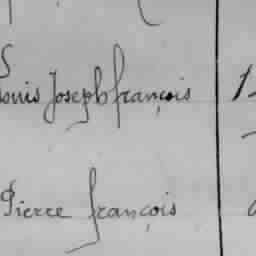 Louis Joseph françois
Pierre françois